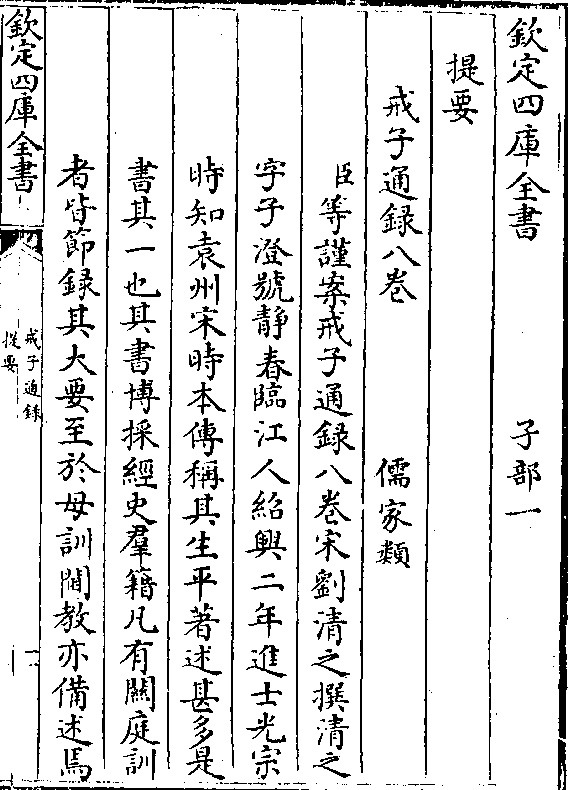 欽定四庫全書 子部一
提要
戒子通錄八卷 儒家類
臣等謹案戒子通錄八卷宋劉清之撰清之
字子澄號靜春臨江人紹興二年進士光宗
時知袁州宋時本傳稱其生平著述甚多是
書其一也其書博採經史羣籍凡有關庭訓
者皆節錄其大要至於母訓閫教亦備述焉
欽定四庫全書
戒子通錄
提要
一